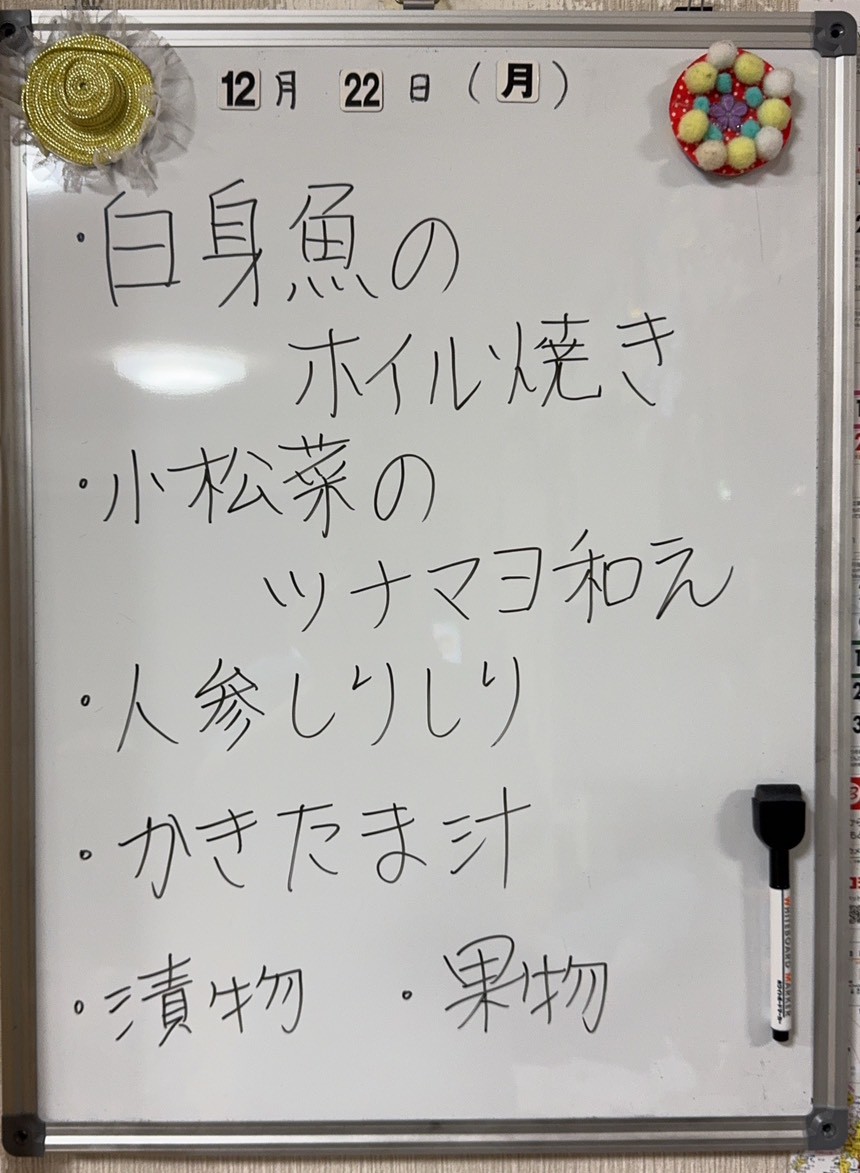 12月 22日(月)
・白身魚の
ホイル焼き
・小松菜の
ツナマヨ和え
・人参しりしり
・かきたま汁
・漬物 ・果物
WHITEBOARD MARKER